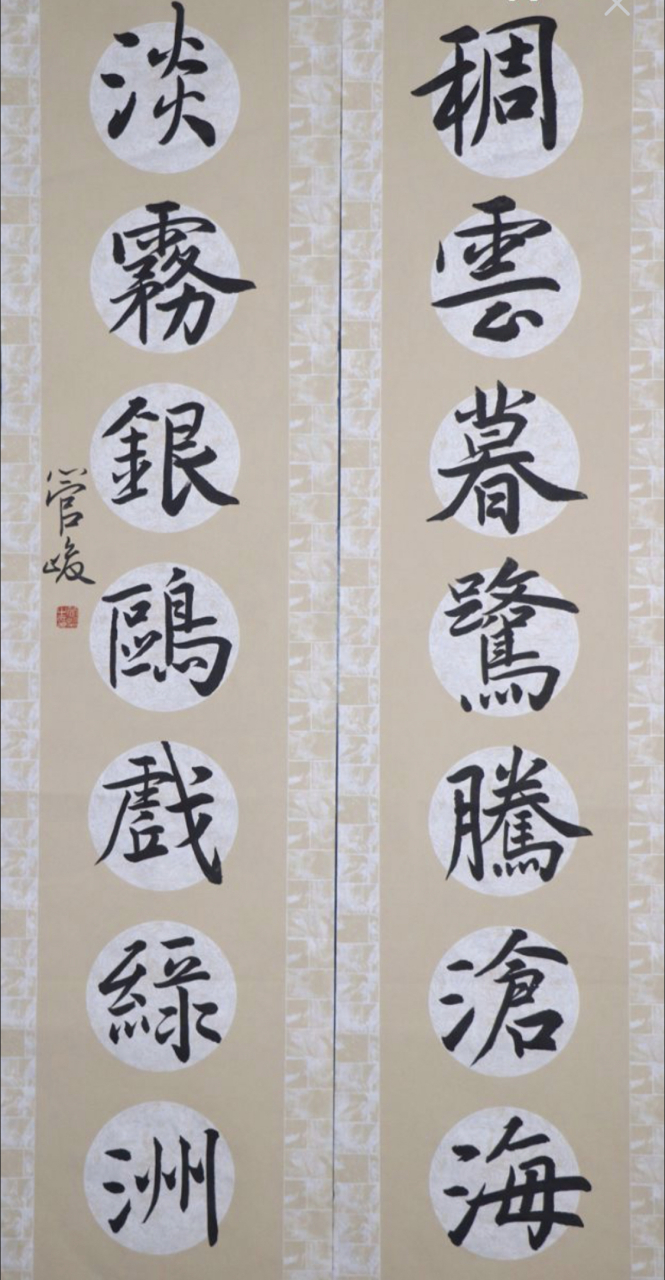 稠雲暮鷺騰滄海
淡霧銀鷗戲綠洲
管峻